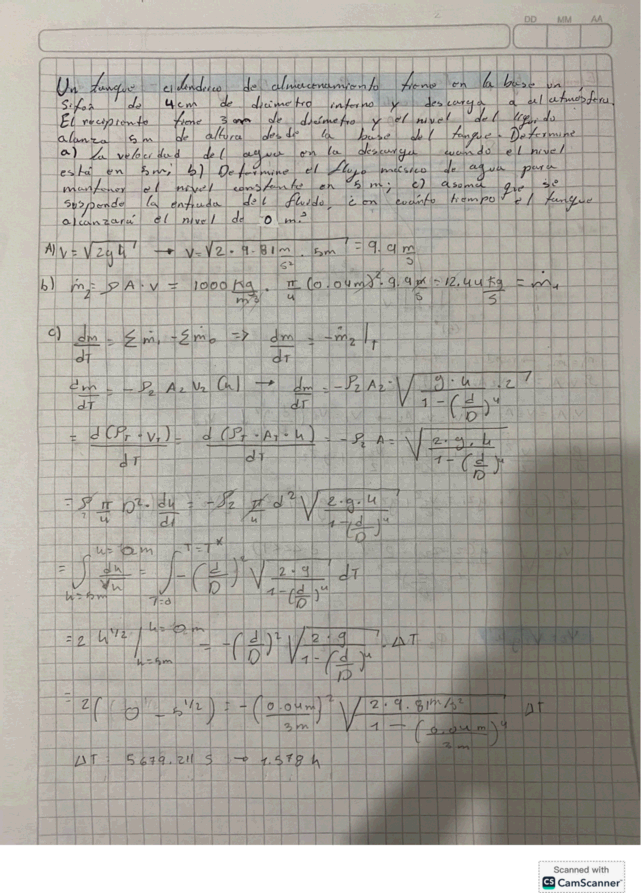 DD MM AA
Un tanque cilíndrico de almacenamiento tiene en la base un
sifón de 4cm de diámetro interno y descarga a al atmósfera.
El recipiente tiene 3 m de diámetro y el nivel del líquido
alanza 5m de altura desde la base del tanque. Determine
a) La velocidad del agua en la descarga cuando el nivel
está en 5m; b) Determine el flujo másico de agua para
mantener el nivel constante en 5 m; c) asema que se
suspende la entrada del fluido, ¿en cuánto tiempo el tanque
alcanzará el nivel de 0 m?
A) V = √2gh → V = √2 · 9.81 m/s² · 5m = 9.9 m/s
b) ṁ₂ = ρ A · V = 1000 kg/m³ · π/4 (0.04m)² · 9.9 m/s = 12.44 kg/s = ṁ₁
c) dm/dT = Σ ṁᵢ - Σ ṁₒ => dm/dT = - ṁ₂ |T
dm/dT = - ρ₂ A₂ V₂ (h) → dm/dT = - ρ₂ A₂ · √(g · h · 2 / 1 - (d/D)⁴)
= d(ρT · VT)/dT = d(ρT · AT · h)/dT = - ρ₂ A = √(2 · g · h / 1 - (d/D)⁴)
= ρ π/4 D² · dh/dt = - ρ₂ π/4 d² √(2 · g · h / 1 - (d/D)⁴)
= ∫ h=5m h=0m dh/√h = ∫ T=0 T=T* - (d/D)² √(2 · g / 1 - (d/D)⁴) dT
= 2 h^1/2 | h=5m h=0m = - (d/D)² √(2 · g / 1 - (d/D)⁴) · ΔT
= 2 ( 0 - 5^1/2 ) = - (0.04m / 3m)² √(2 · 9.81m/s² / 1 - (0.04m / 3m)⁴) ΔT
ΔT = 5679.211 s → 1.578 h
Scanned with
CS CamScanner